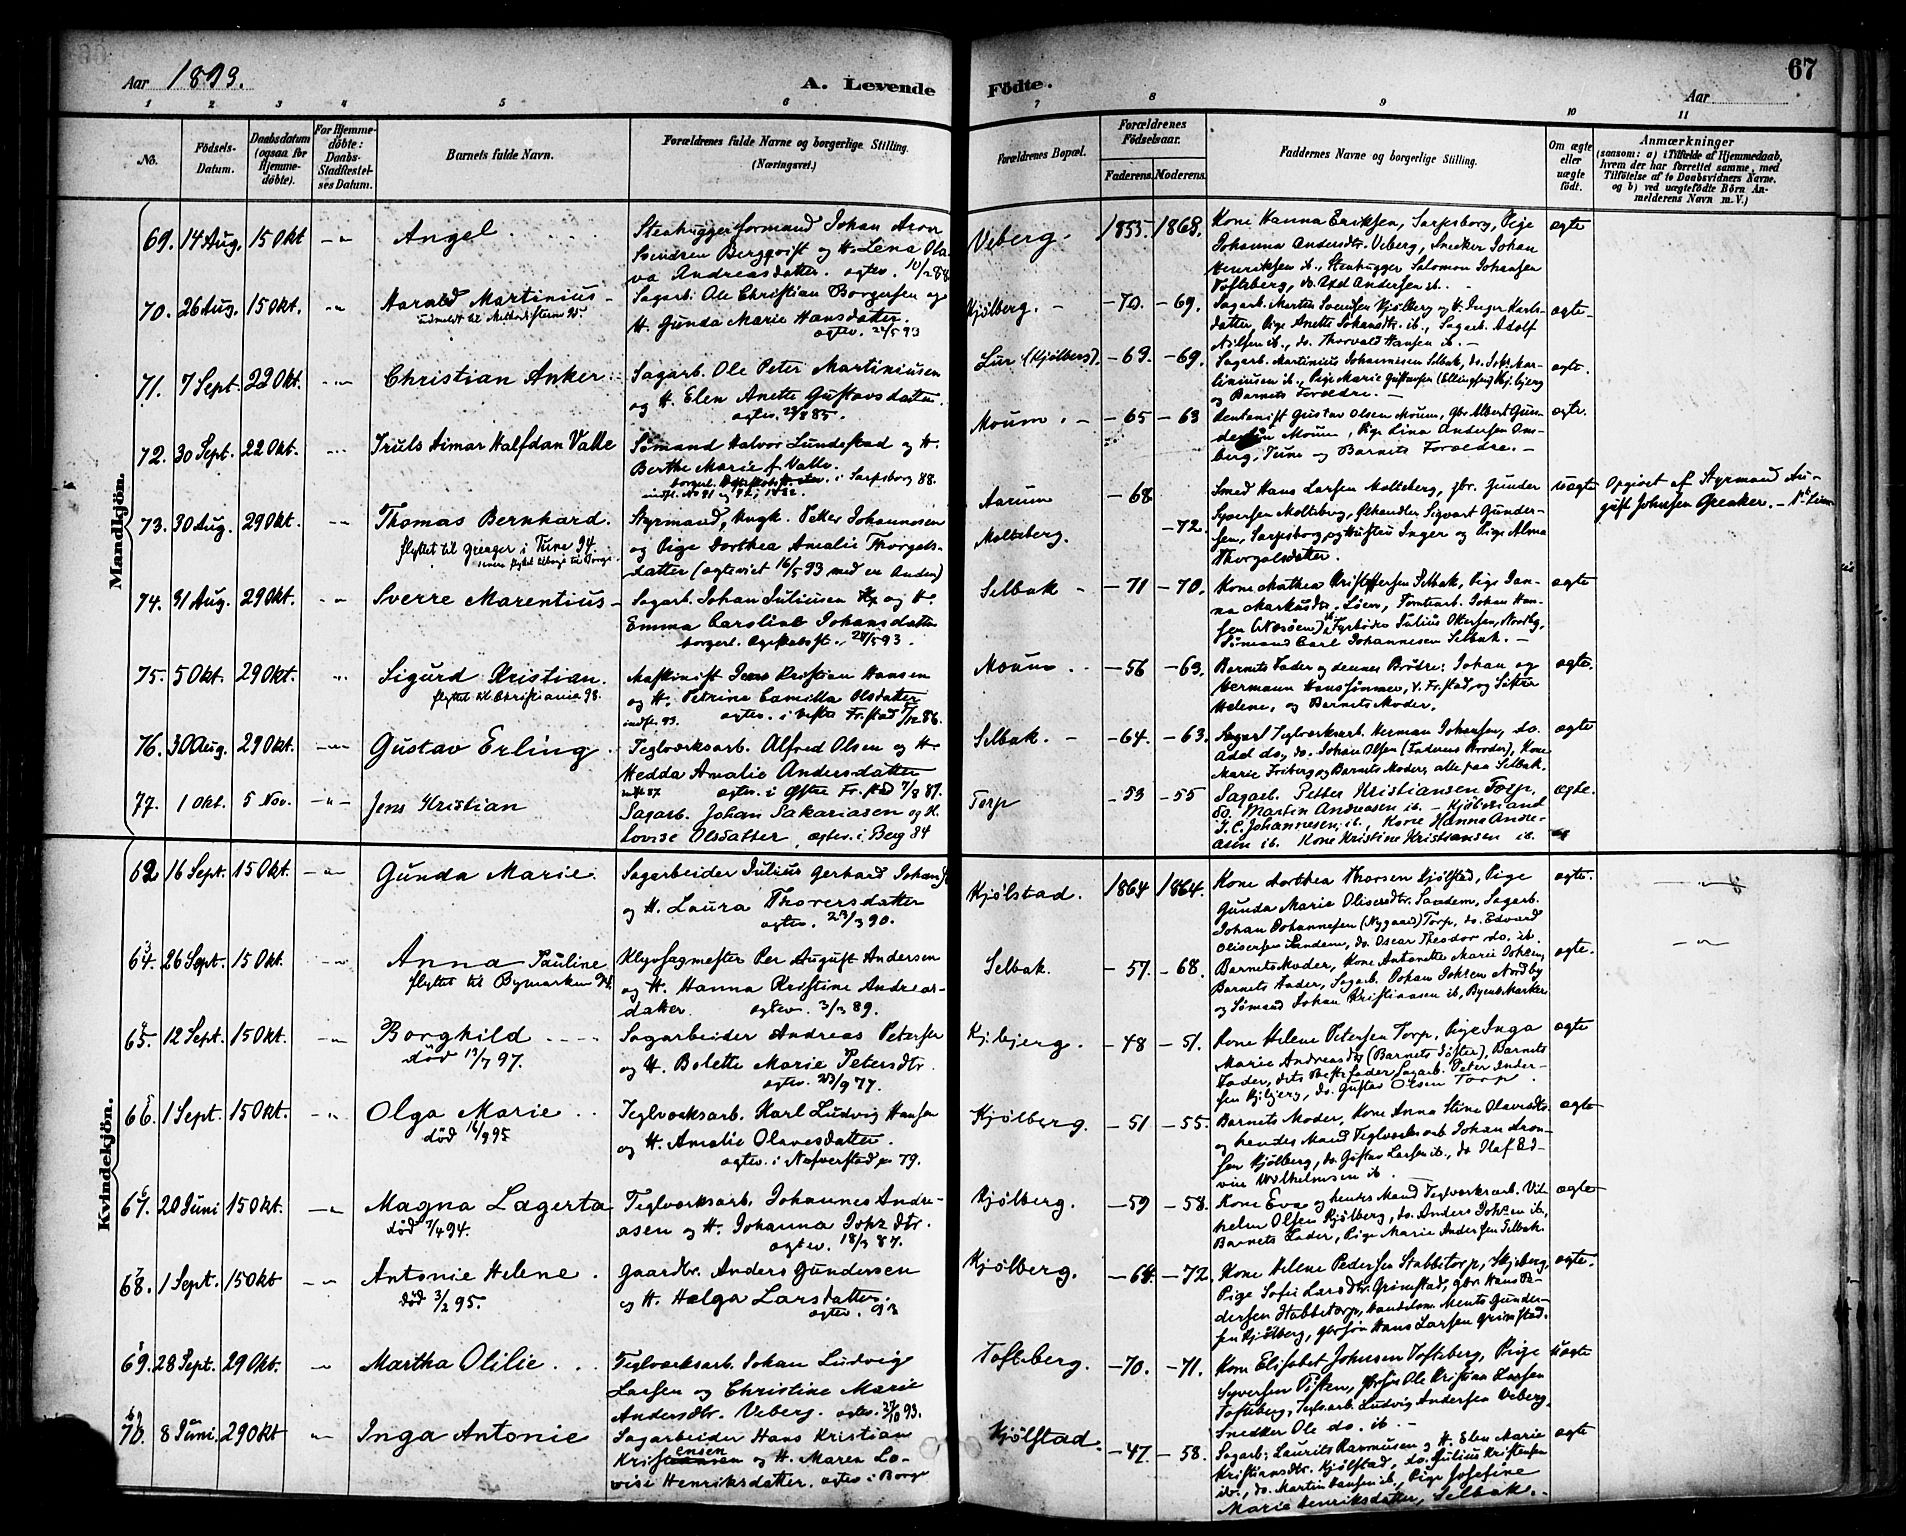 Aar 1893.
A. Levende
Födte.
67
Aar
1 2 3 4 5 6 7 8 9 10 11
No.
Födsels-
Datum.
Daabsdatum
(ogsaa for
Hjemme-
döbte).
For Hjemme-
döbte:
Daabs-
Stadfæstel-
ses Datum.
Barnets fulde Navn.
Forældrenes fulde Navne og borgerlige Stilling.
(Næringsvei.)
Forældrenes Bopæl.
Forældrenes
Födselsaar.
Faderens. Moderens.
Faddernes Navne og borgerlige Stilling.
Om ægte
eller
uægte
födt.
Anmærkninger
(saasom: a) i Tilfælde af Hjemmedaab,
hvem der har forrettet samme, med
Tilföielse af to Daabsvidners Navne.
og b) ved uægtefödte Börn An-
melderens Navn m. V.)
Mandkjön.
69. 14 Aug. 15 Okt - " Angel
Stenhuggerformand Johan Aron
Svendsen Bergqvist og H. Lena Ola-
va Andreasdatter. ægtev. 10/2 88
Veberg. 1855. 1868.
Kone Hanna Eriksen, Sarpsborg, Pige
Johanna Andersdtr. Veberg, Snekker Johan
Henriksen ib., Stenhugger Salomon Johansen
Tofteberg, do. Axel Andersen ib.
ægte
70. 26 Aug. 15 Okt. Harald Martinius
udmeldt til Methodisterne 95.
Sagarb. Ole Christian Borgersen og
H. Gunda Marie Hansdatter.
ægtev. 24/5 93
Kjølberg. - 70. - 69.
Sagarb. Martin Svensen Kjølberg og H. Inger Karls-
datter, Pige Anette Johansdtr. ib., Sagarb. Adolf
Nilsen ib., do. Thorvald Hansen ib. -
ægte
71. 7 Sept. 22 Okt. Christian Anker
Sagarb. Ole Peter Martiniusen
og H. Elen Anette Gustavsdatter.
Lur (Kjølberg). - 69. - 69.
Sagarb. Martinius Johannesen Selbak, do. Johs. Mar-
tiniusen ib., Pige Marie Gustavsen
og Barnets Forældre. -
ægte.
72. 30 Sept. 22 Okt. Truls Aimar Halfdan Valle
Sømand Halvor Lundestad og H.
Berthe Marie f. Valle.
i Sarpsborg 88.
Moum. - 65 - 63
Gustav Olsen Moum, gbr. Albert Gun-
dersen Moum, Pige Lina Andersen Om-
berg, Tune og Barnets Forældre. -
ægte.
73. 30 Aug. 29 Okt. Thomas Bernhard.
flyttet til Greaker i Tune 94.
Styrmand, Ungk. Petter Johannesen
og Pige Dorthea Amalie Thorgels-
datter (ægteviet 16/5 93 med en Anden)
Aarum - 68
Molteberg. - 72.
Smed Hans Larsen Molteberg, gbr. Gunder
Syversen Molteberg, Sigvart Gunder-
sen, Sarpsborg, og Hustru Inger og Pige Alma
Thorgelsdatter.
uægte
Opgivet af Styrmand Au-
gust Johnsen Greaker.
74. 31 Aug. 29 Okt. Sverre Marentius
Sagarb. Johan Juliusen og H.
Emma Caroline Johansdatter
borgerl. Ægteskabst. 24/5 93.
Selbak - 71 - 70.
Kone Mathea Kristoffersen Selbak, Pige Jan-
na Markusdtr. Löen, Tomtearb. Johan Han-
sen, Fyrböder Julius Ottersen, Nordby,
Sømand Carl Johannesen Selbak. -
ægte
75. 5 Okt. 29 Okt. Sigurd Kristian.
flyttet til Christiania 98.
Maskinist Jens Kristian Hansen
og H. Petrine Camilla Olsdatter
indfl. 93. ægtev. i vestre Fr.stad 5/12 86.
Moum - 56 - 63.
Barnets Fader og dennes Brödre: Johan og
Hermann Hanssönner, v. Fr.stad, og Söster
Helene, og Barnets Moder.
ægte.
76. 30 Aug. 29 Okt. Gustav Erling
Teglværksarb. Alfred Olsen og H.
Hedda Amalie Andersdatter
indfl. 87 ægtev. i Østre Fr.stad 7/8 87.
Selbak. - 64. - 63.
Teglværksarb. Herman Johansen, do.
Axel do., do. Johan Olsen (Faderens Broder), Kone
Marie Friberg og Barnets Moder, alle paa Selbak.
ægte
77. 1 Okt. 5 Nov. - " - Jens Kristian
Sagarb. Johan Sakariasen og H.
Lovise Olsdatter, ægtev. i Berg 84
Torp - 53 - 55
Sagarb. Petter Kristiansen Torp,
do. Martin Andreasen ib. - Kjöbmand
J. C. Johannesen, ib., Kone Hanna Andre-
asen ib. Kone Kristine Kristiansen ib.
ægte.
Kvindekjön.
62 16 Sept. 15 Okt. Gunda Marie
Sagarbeider Julius Gerhard Johans.
og H. Laura Thorersdatter
ægtev. 23/3 90.
Kjølstad. 1864 1864.
Kone Dorthea Thorsen Kjølstad, Pige
Gunda Marie Olisersdtr. Sandem, Sagarb.
Johan Johannesen (Nygaard) Torp, do. Edvard
Olisersen Sandem, do. Oscar Theodor do. ib.
ægte.
64. 26 Sept. 15 Okt. Anna Pauline
flyttet til Bymarken 94.
Klyvsagmester Per August Andersen
og H. Hanna Kristine Andreas-
datter. ægtev. 3/3 89.
Selbak. - 57. - 68.
Barnets Moder, Kone Antonette Marie Johsen,
Barnets Fader, Sagarb. Johan Johsen Nordby
og Sømand Johan Kristiansen ib, Byens Marker
ægte.
65. 12 Sept. 15 Okt. Borghild
död 13/7 97.
Sagarbeider Andreas Petersen
og H. Bolette Marie Petersdtr.
ægtev. 23/9 77.
Kjibjerg. - 48 - 51.
Kone Helene Petersen Torp, Pige Inga
Marie Andreasdtr. (Barnets Söster), Barnets
Fader, dets Bestefader Sagarb. Peter Ander-
sen Kjibjerg, do. Gustav Olsen Torp.
ægte
66. 1 Sept. 15 Okt. Olga Marie
död 16/9 95
Teglværksarb. Karl Ludvig Hansen
og H. Amalie Olavesdatter.
ægtev. i Næfverstad 79.
Kjølberg. - 51 - 55.
Barnets Moder, Kone Anna Stine Olavesdtr.
og hendes Mand Teglværksarb. Johan Aron-
sen Kjølberg, do. Gustav Larsen ib., do. Olaf Ed-
vin Wilhelmsen ib.
ægte
67. 20 Juni 15 Okt. Magna Lagerta
död 7/4 94.
Teglværksarb. Johannes Andre-
asen og H. Johanna Johs dtr.
ægtev. 18/3 87.
Kjølberg. - 59 - 58.
Kone Eva og hendes Mand Teglværksarb. Vil-
helm Olsen Kjølberg, do. Anders Johsen ib.,
Barnets Fader, Pige Marie Andersen Selbak.
ægte
68. 1 Sept. 15 Okt - " Antonie Helene.
död 3/2 95.
Gaardbr. Anders Gundersen
og H. Helga Larsdatter.
ægtev. 93
Kjølberg. - 64. - 72.
Kone Helene Pedersen Stabbetorp, Skjeberg,
Pige Sofie Larsdtr. Grimstad, gbr. Hans Pe-
dersen Stabbetorp, Handelsm. Ments Gunder-
sen Kjølberg, gbrsön Hans Larsen Grimstad.
ægte.
69. 28 Sept. 29 Okt. Martha Olilie
Teglværksarb. Johan Ludvig
Larsen og Christine Marie
Andersdtr. Veberg. ægtev. 27/10 93.
Tofteberg. - 70. - 71.
Kone Elisabet Johnsen Tofteberg, Pige
Syversen Pisten, gbrsön Ole Kristian Larsen
Tofteberg, Teglv.arb. Ludvig Andersen Veberg,
Snedker Ole do. ib. -
uægte
70. 8 Juni. 29 Okt Inga Antonie
Sagarbeider Hans Kristian
Kristensen og H. Maren Lo-
vise Henriksdatter. ægtev. i Borge
Kjølstad. - 47. - 58.
Sagarb. Laurits Rasmusen og H. Elen Marie
Kristiansdtr. Kjølstad, do. Julius Kristensen
ib., do. Martin Hansen ib., Pige Josefine
Marie Henriksdatter, Selbak. -
ægte